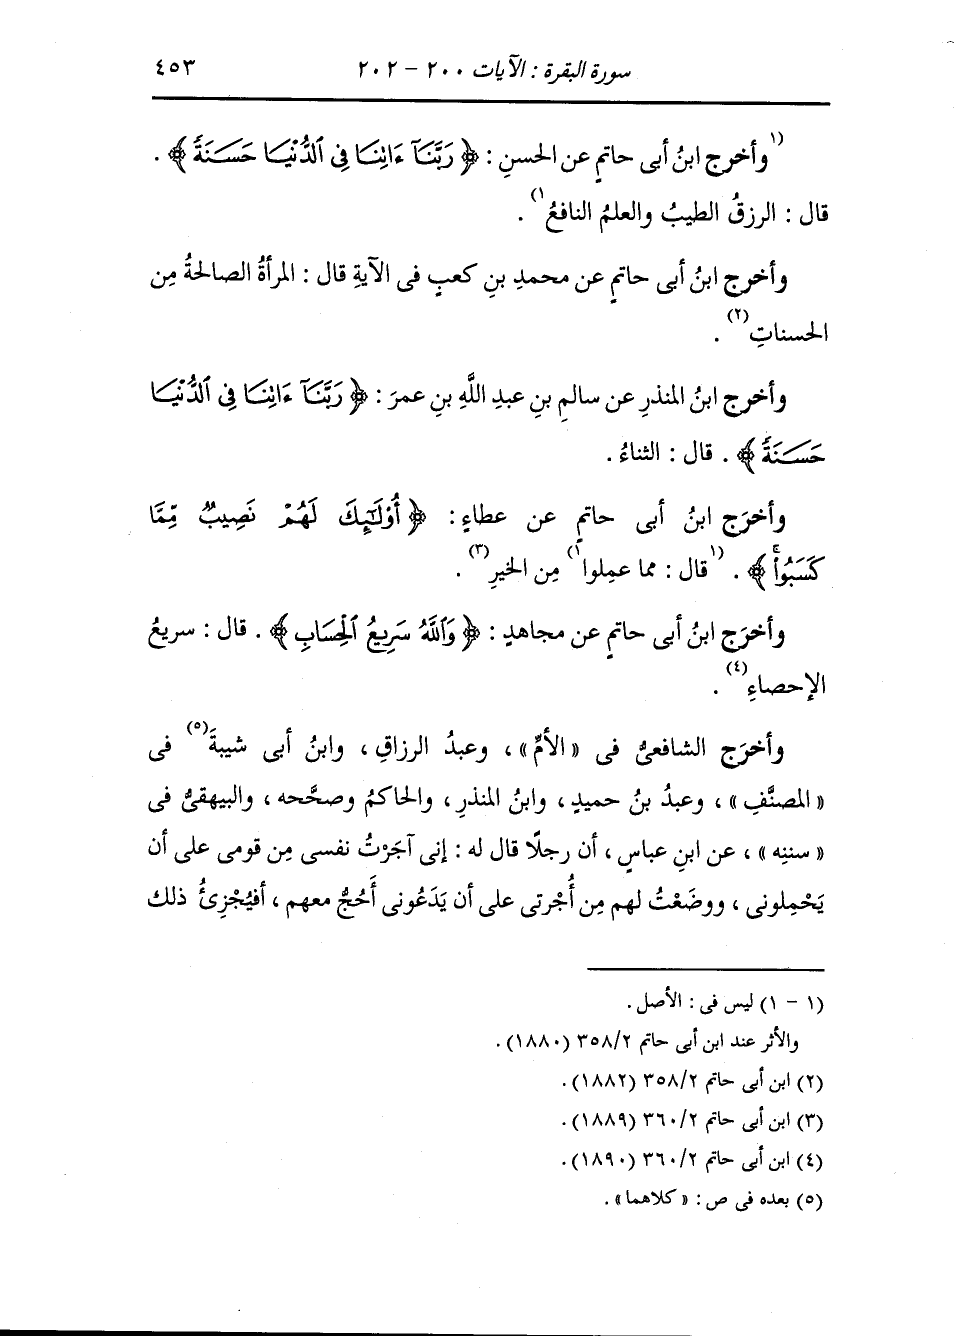 سورة البقرة : الآيات ٢٠٠ - ٢٠٢ ٤٥٣
(١ وأخرج ابنُ أبى حاتمٍ عن الحسنِ : ﴿ رَبَّنَآ ءَاتِنَا فِى ٱلدُّنْيَا حَسَنَةً ﴾ .
قال : الرزقُ الطيبُ والعلمُ النافعُ ١) .
وأخرج ابنُ أبى حاتمٍ عن محمدِ بنِ كعبٍ فى الآيةِ قال : المرأةُ الصالحةُ مِن
الحسناتِ (٢) .
وأخرج ابنُ المنذرِ عن سالمِ بنِ عبدِ اللَّهِ بنِ عمرَ : ﴿ رَبَّنَآ ءَاتِنَا فِى ٱلدُّنْيَا
حَسَنَةً ﴾ . قال : الثناءُ .
وأخرَج ابنُ أبى حاتمٍ عن عطاءٍ : ﴿ أُوْلَٰٓئِكَ لَهُمْ نَصِيبٌ مِّمَّا
كَسَبُواْۚ ﴾ . (١ قال : مما عمِلوا ١) مِن الخيرِ (٣) .
وأخرَج ابنُ أبى حاتمٍ عن مجاهدٍ : ﴿ وَٱللَّهُ سَرِيعُ ٱلْحِسَابِ ﴾ . قال : سريعُ
الإحصاءِ (٤) .
وأخرَج الشافعىُّ فى « الأمِّ » ، وعبدُ الرزاقِ ، وابنُ أبى شيبةَ (٥) فى
« المصنَّفِ » ، وعبدُ بنُ حميدٍ ، وابنُ المنذرِ ، والحاكمُ وصحَّحه ، والبيهقىُّ فى
« سننِه » ، عن ابنِ عباسٍ ، أن رجلًا قال له : إنى آجَرْتُ نفسى مِن قومى على أن
يَحْمِلونى ، ووضَعْتُ لهم مِن أُجْرتى على أن يَدَعُونى أَحُجُّ معهم ، أفيُجْزِئُ ذلك
(١ - ١) ليس فى : الأصل .
والأثر عند ابن أبى حاتم ٣٥٨/٢ (١٨٨٠) .
(٢) ابن أبى حاتم ٣٥٨/٢ (١٨٨٢) .
(٣) ابن أبى حاتم ٣٦٠/٢ (١٨٨٩) .
(٤) ابن أبى حاتم ٣٦٠/٢ (١٨٩٠) .
(٥) بعده فى ص : « كلاهما » .